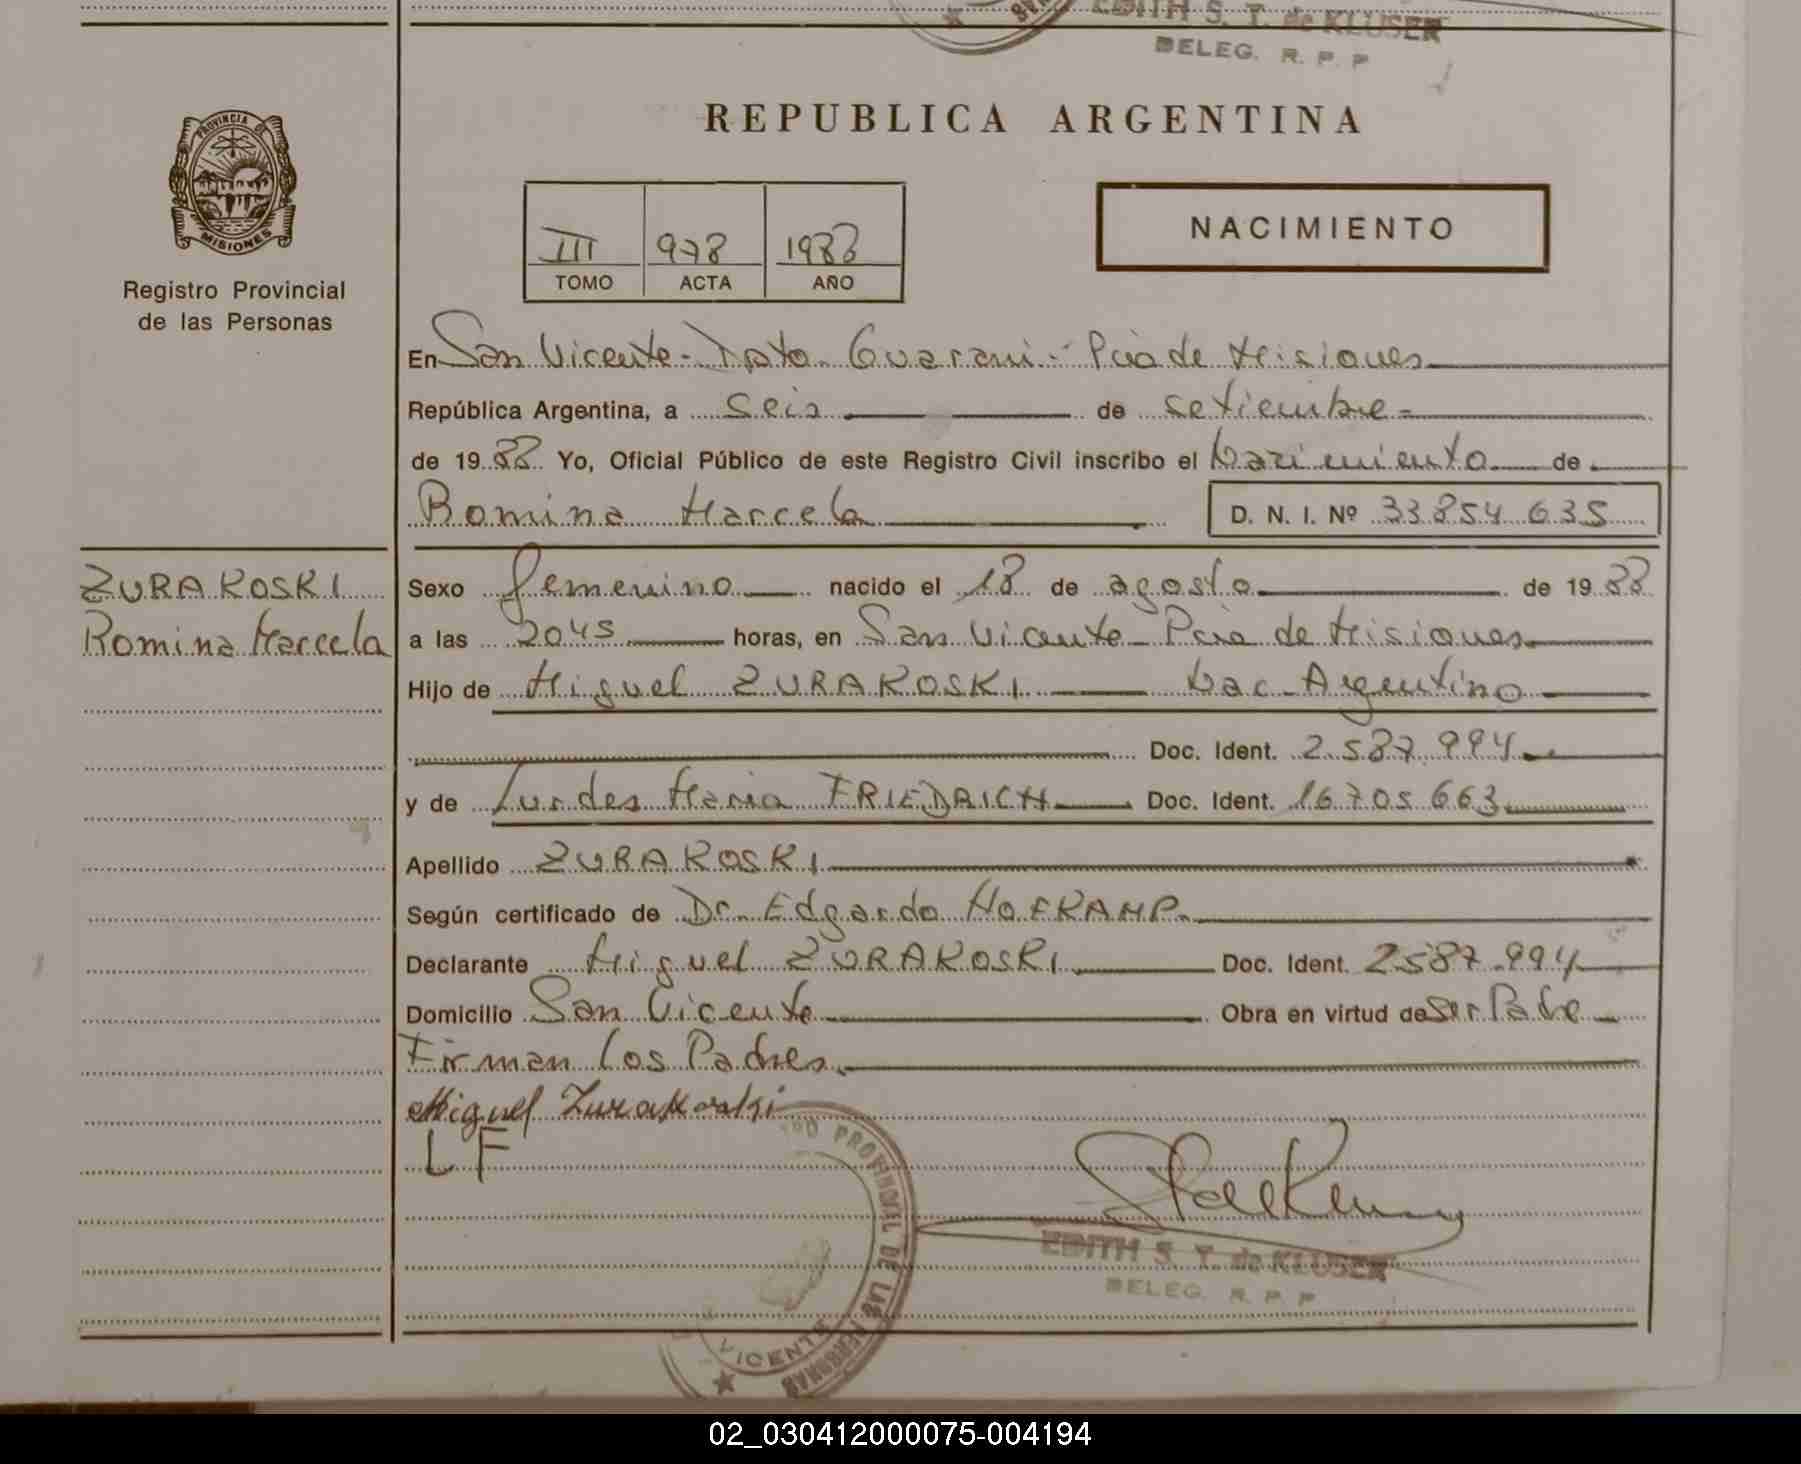 EDITH S. T. de KLUSER
DELEG. R. P. P
REPUBLICA ARGENTINA
PROVINCIA DE
MISIONES
Registro Provincial
de las Personas
III 978 1988
TOMO ACTA AÑO
NACIMIENTO
En San Vicente - Dpto. Guarani - Pcia de Misiones
República Argentina, a seis de setiembre -
de 1988 Yo, Oficial Público de este Registro Civil inscribo el Nacimiento de
Romina Marcela D. N. I. Nº 33854635
ZURAKOSKI
Romina Marcela
Sexo femenino nacido el 18 de agosto de 1988
a las 2045 horas, en San Vicente - Pcia de Misiones
Hijo de Miguel ZURAKOSKI Nac. Argentino
Doc. Ident. 2.587.994
y de Lurdes Maria FRIEDRICH Doc. Ident. 16.705.663
Apellido ZURAKOSKI
Según certificado de Dr. Edgardo HOFKAMP.
Declarante Miguel ZURAKOSKI Doc. Ident. 2587.994
Domicilio San Vicente Obra en virtud de Ser Padre
Firman los Padres.
Miguel Zurakoski
L F
PROVINCIAL DE LAS PERSONAS
VICENTE
EDITH S. T. de KLUSER
DELEG. R. P. P
02_030412000075-004194